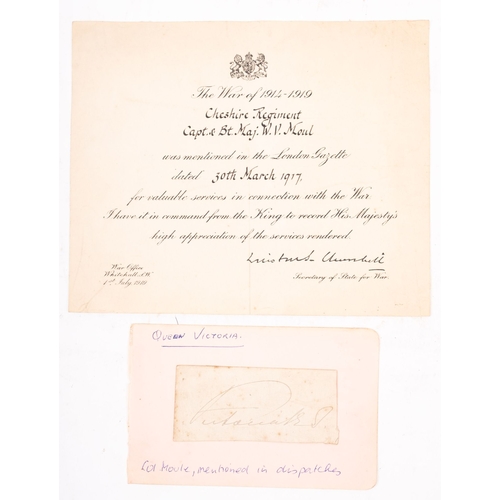 The War of 1914-1919
Cheshire Regiment
Capt. & Bt. Maj. W. V. Moul
was mentioned in the London Gazette
dated 30th March 1917.
for valuable services in connection with the War.
I have it in command from the King to record His Majesty's
high appreciation of the services rendered.
Winston S Churchill
War Office
Whitehall, S.W.
Secretary of State for War.
July 1919
QUEEN VICTORIA.
Victoria R I
Col Moule, mentioned in dispatches